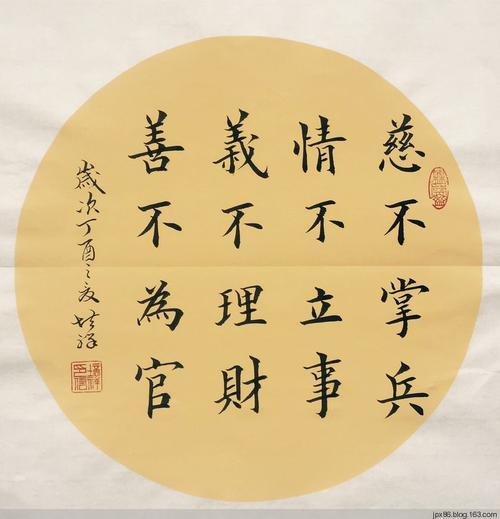 慈不掌兵
情不立事
義不理財
善不為官
歲次丁酉之夏 培祥
jpx86.blog.163.com